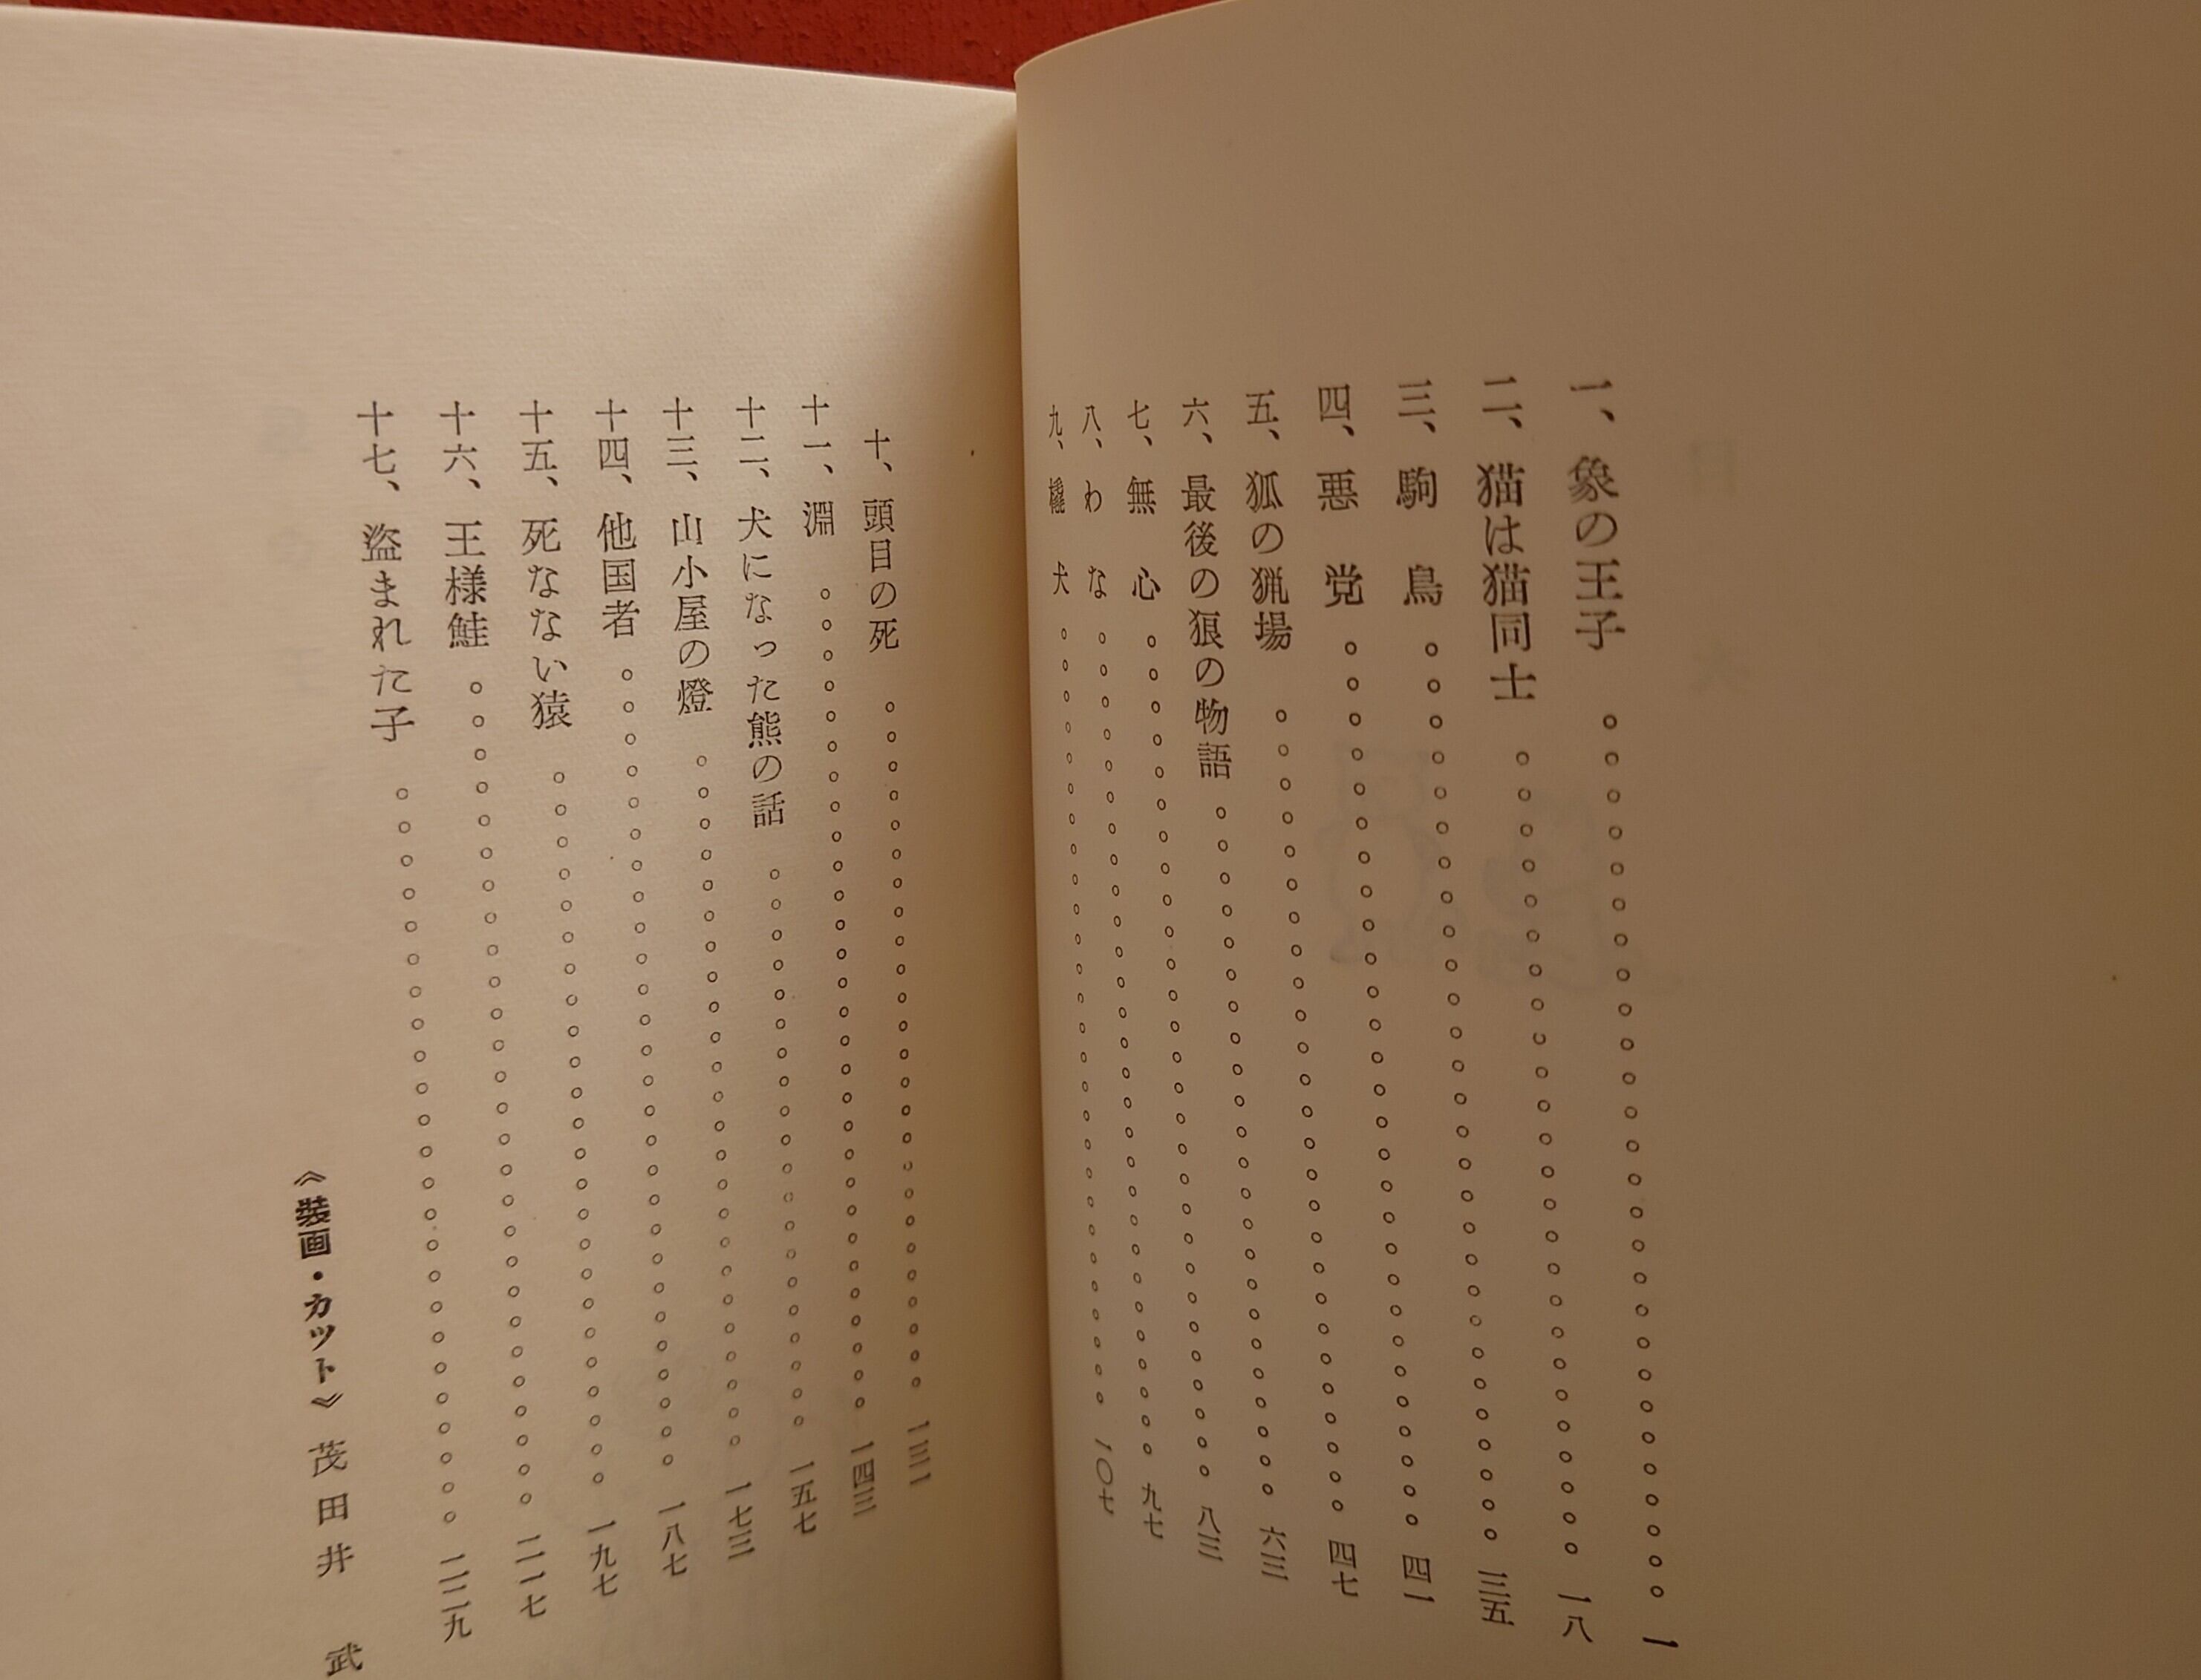 一、象の王子……一
二、猫は猫同士……一八
三、駒鳥……三五
四、悪党……四一
五、狐の猟場……四七
六、最後の狼の物語……六三
七、無心……八三
八、わな……九七
九、橇犬……一〇七
十、頭目の死……一三一
十一、淵……一四三
十二、犬になった熊の話……一五七
十三、山小屋の燈……一七三
十四、他国者……一八七
十五、死なない猿……一九七
十六、王様鮭……二一七
十七、盗まれた子……二二九
《裝画・カツト》茂田井 武